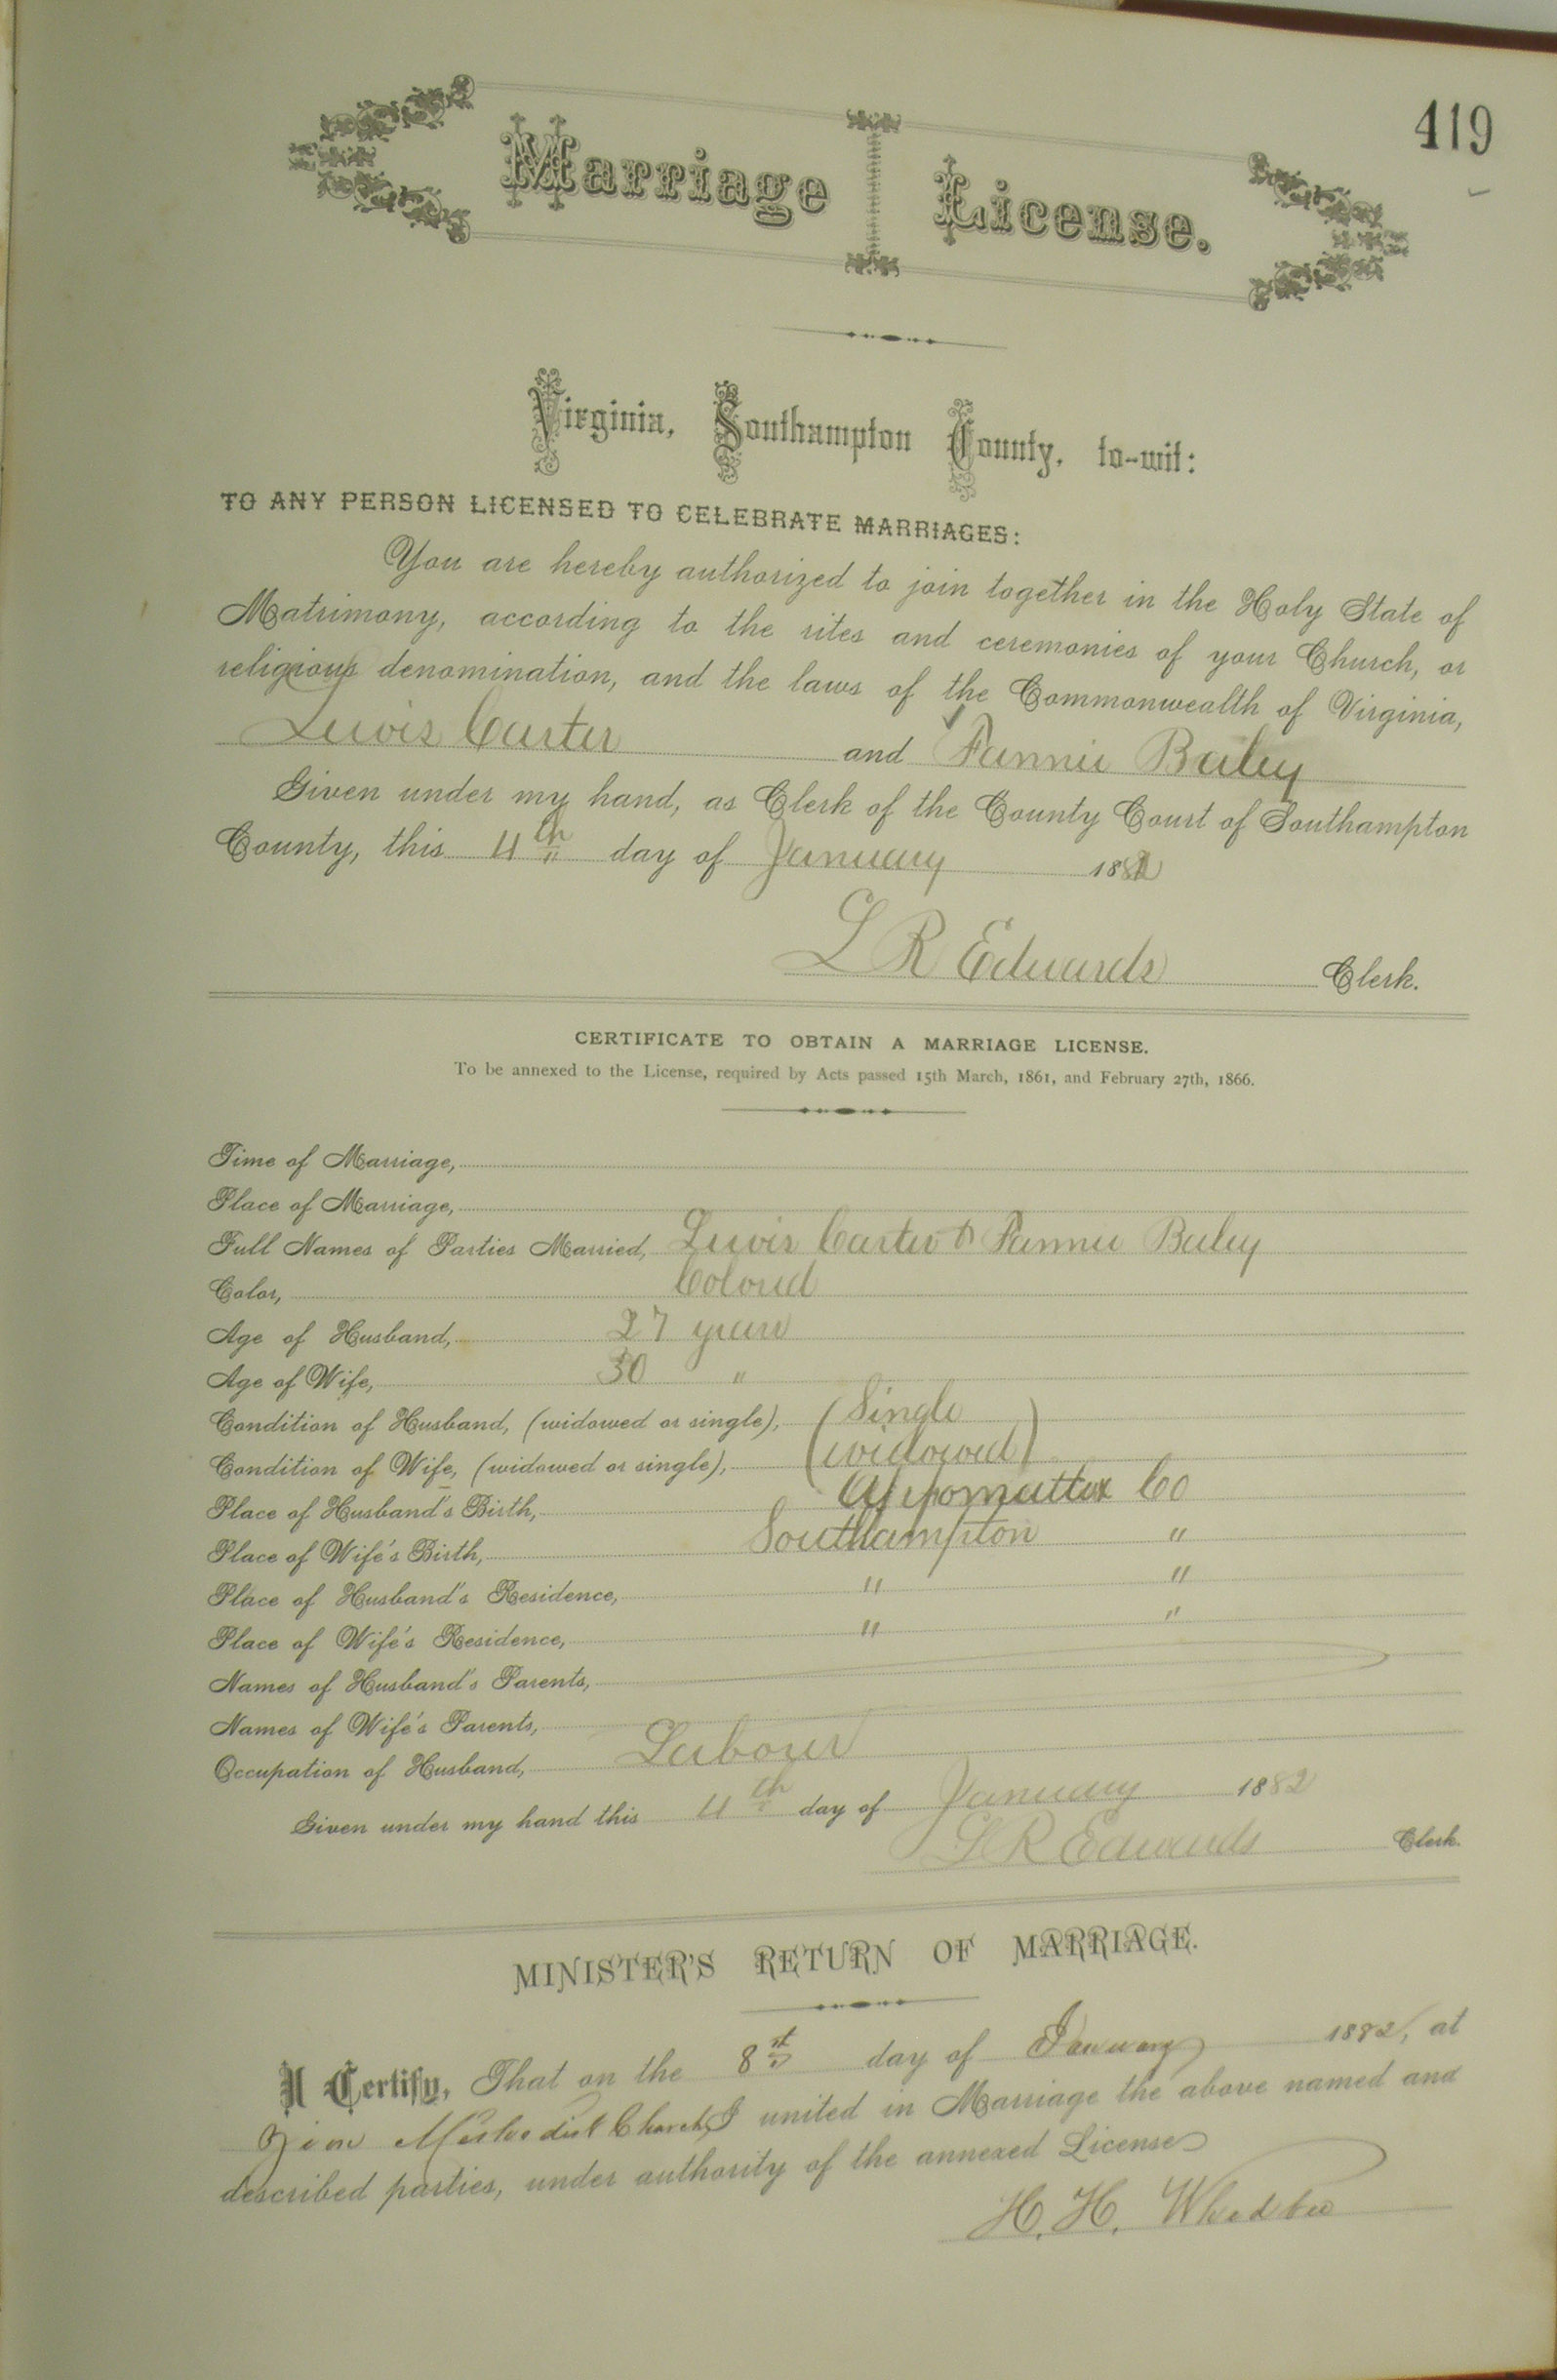 419
Marriage License.
Virginia, Southampton County, to-wit:
TO ANY PERSON LICENSED TO CELEBRATE MARRIAGES:
You are hereby authorized to join together in the Holy State of
Matrimony, according to the rites and ceremonies of your Church, or
religious denomination, and the laws of the Commonwealth of Virginia,
Lewis Carter and Fannie Bailey
Given under my hand, as Clerk of the County Court of Southampton
County, this 4th day of January 1882
L R Edwards Clerk.
CERTIFICATE TO OBTAIN A MARRIAGE LICENSE.
To be annexed to the License, required by Acts passed 15th March, 1861, and February 27th, 1866.
Time of Marriage,
Place of Marriage,
Full Names of Parties Married, Lewis Carter & Fannie Bailey
Color, Colored
Age of Husband, 27 years
Age of Wife, 30 "
Condition of Husband, (widowed or single), (Single)
Condition of Wife, (widowed or single), (widowed)
Place of Husband's Birth, Appomattox Co
Place of Wife's Birth, Southampton "
Place of Husband's Residence, " "
Place of Wife's Residence, " "
Names of Husband's Parents,
Names of Wife's Parents,
Occupation of Husband, Laborer
Given under my hand this 4th day of January 1882
L R Edwards Clerk.
MINISTER'S RETURN OF MARRIAGE.
I Certify, That on the 8st day of January 1882, at
Zion Methodist Church, I united in Marriage the above named and
described parties, under authority of the annexed License
H. H. Whedbee